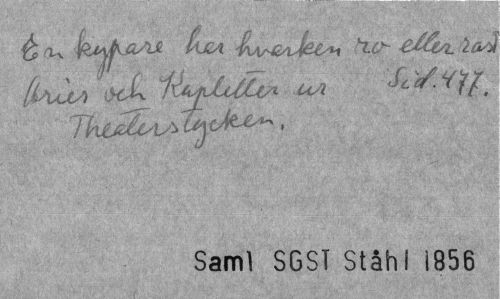 En kypare har hvarken ro eller rast
Arier och Kupletter ur Sid. 477.
Theaterstycken.
Saml SGST Ståhl 1856